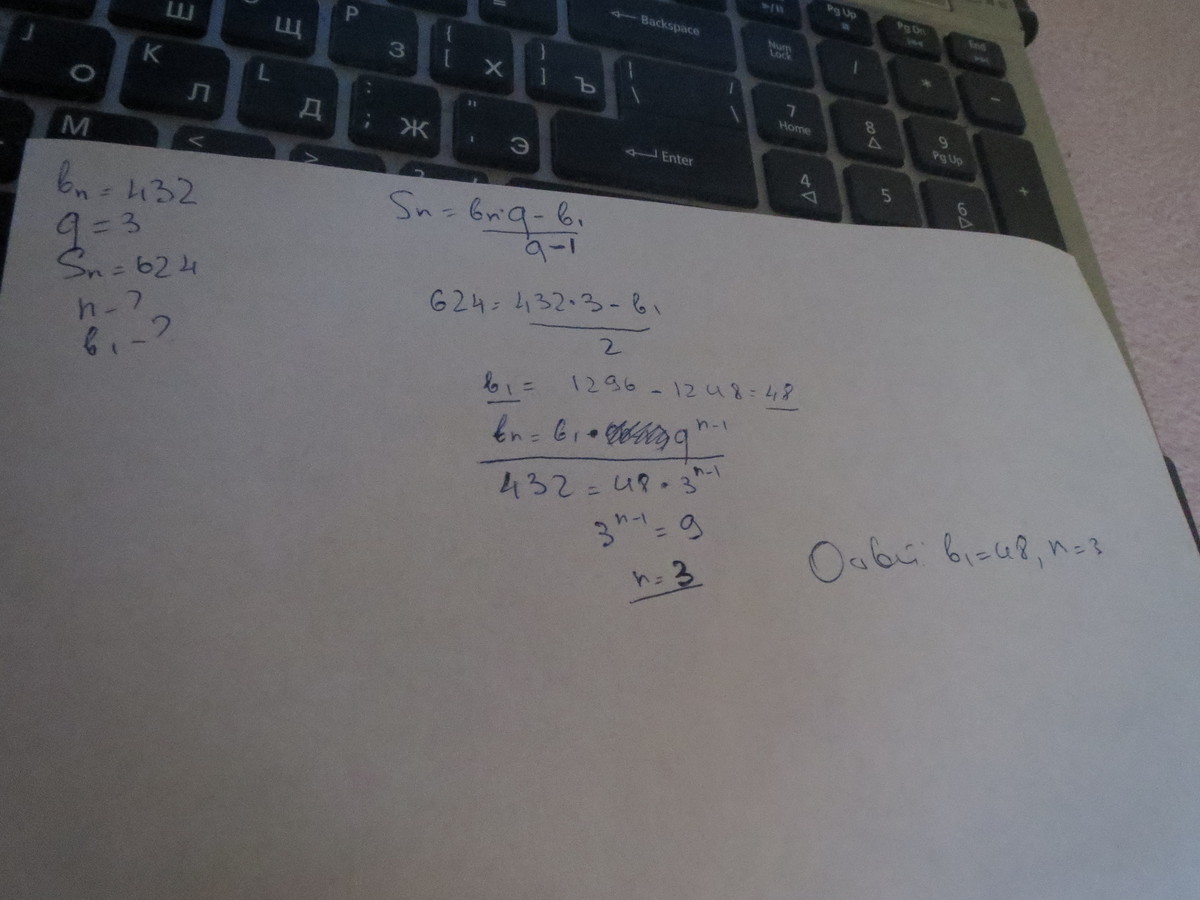 Ш
Щ
P З
{ [ Х
} ] Ъ
=
Backspace
Pg Up
Pg Dn
End
Num Lock
/
*
-
J О
K Л
L Д
: ; Ж
" ' Э
| \ / \
Enter
7 Home
8
9 Pg Up
+
M
<
>
?
4
5
6
bn = 432
q = 3
Sn = 624
n - ?
b1 - ?
Sn = bn·q - b1
q-1
624 = 432·3 - b1
2
b1 = 1296 - 1248 = 48
bn = b1 · q^n-1
432 = 48 · 3^n-1
3^n-1 = 9
n = 3
Ответ: b1=48, n=3